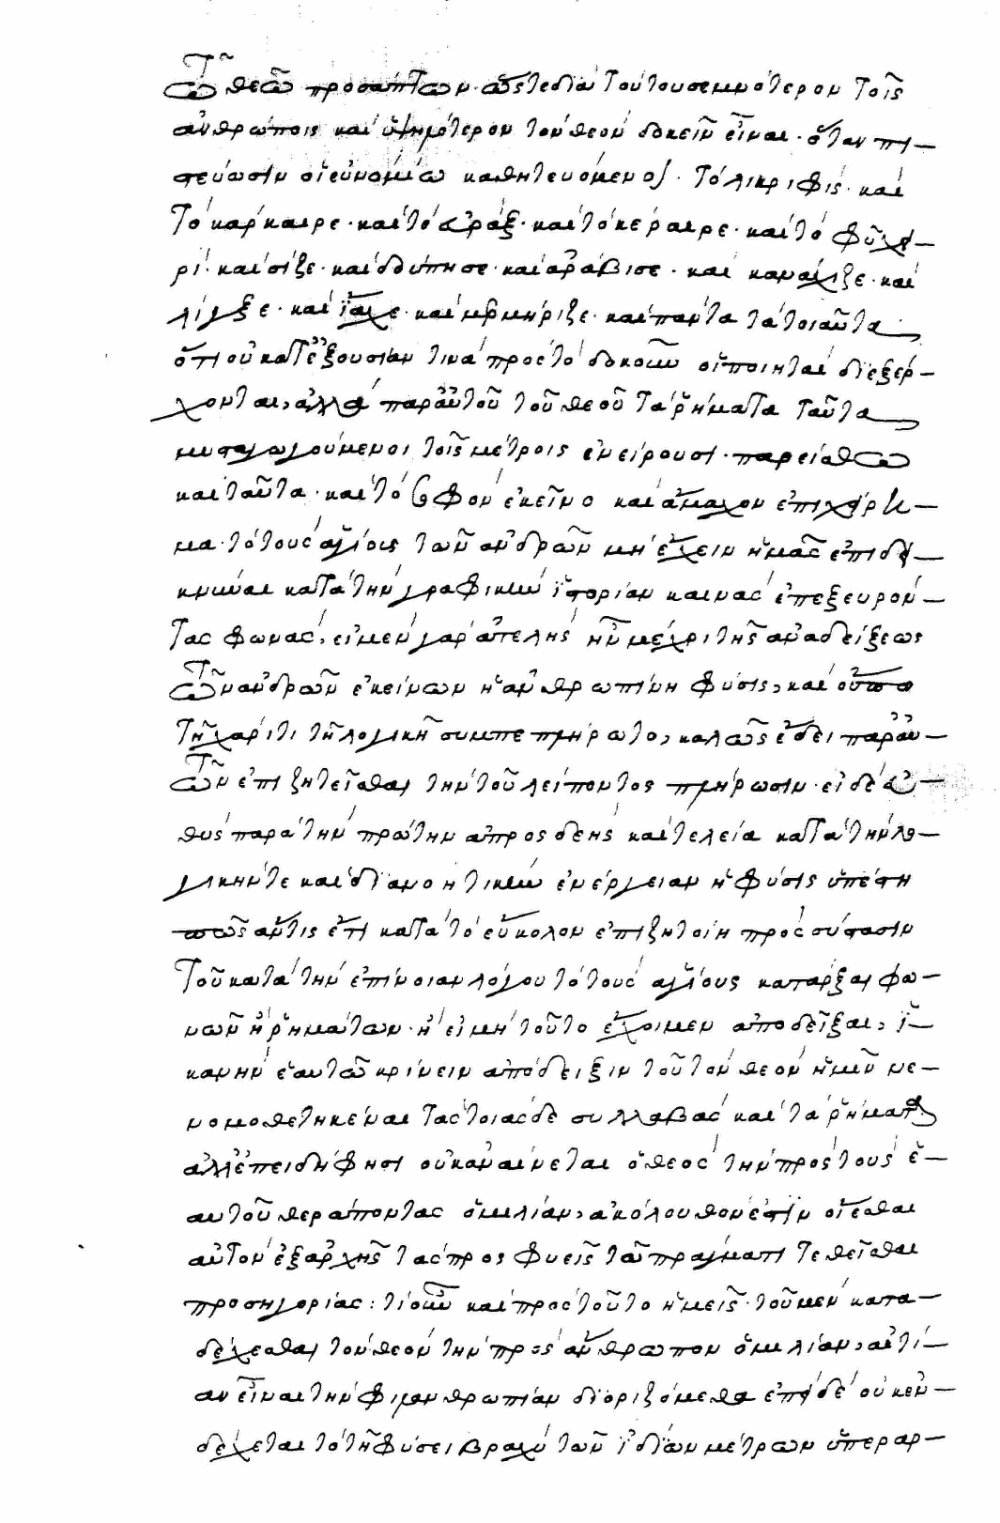 τῶ θεῶ προσάπτων. ὥστε διὰ τούτου σεμνότερον τοῖς
ἀνθρώποις καὶ ὑψηλότερον τὸν θεὸν δοκεῖν εἶναι. ὅταν πι-
στεύωσιν οἱ εὐνομίω καθητευόμενοι. τὸ λικριφίς. καὶ
τὸ κάρκαιρε. καὶ τὸ εὐράξ. καὶ τὸ κέραιρε. καὶ τὸ
ρί. καὶ σίζε. καὶ δούπησε. καὶ ἀράβισε. καὶ καναχιζε. καὶ
λίγξε. καὶ ἴαχε. καὶ μερμήριζε. καὶ πάντα τὰ τοιαῦτα
ὅτι οὐ κατ' ἐξουσίαν τινὰ πρὸς τὸ δοκοῦν οἱ ποιηταὶ διεξέρ-
χονται, ἀλλὰ παρ' αὐτοῦ τοῦ θεοῦ τὰ ῥήματα ταῦτα
μυσταγωγούμενοι τοῖς μέτροις ἐνείρουσι. παρείσθω
καὶ ταῦτα. καὶ τὸ σοφὸν ἐκεῖνο καὶ ἄμαχον ἐπιχείρη-
μα. τὸ τοὺς ἁγίοις τῶν ἀνδρῶν μὴ ἔχειν ἡμᾶς ἐπιδει-
κνύναι κατὰ τὴν γραφικὴν ἱστορίαν καινὰς ἐπεξευρόν-
τας φωνάς, εἰ μὲν γὰρ ἀτελὴς ἦν μέχρι τῆς ἀναδείξεως
τῶν ἀνδρῶν ἐκείνων ἡ ἀνθρωπίνη φύσις, καὶ οὔπω
τῇ χάριτι τῇ λογικῇ συμπεπλήρωτο, καλῶς ἔδει παρ' αὐ-
τῶν ἐπιζητεῖσθαι τὴν τοῦ λείποντος πλήρωσιν. εἰ δὲ εὐ-
θὺς παρὰ τὴν πρώτην ἀπροσδεὴς καὶ τελεία κατὰ τὴν λο-
γικήν τε καὶ διανοητικὴν ἐνέργειαν ἡ φύσις ὑπέστη
πῶς ἄν τις ἔτι κατὰ τὸ εὔκολον ἐπιζητοίη πρὸς σύστασιν
τοῦ κατὰ τὴν ἐπίνοιαν λόγου τὸ τοὺς ἁγίους κατάρξαι φω-
νῶν ἢ ῥημάτων. ἢ εἰ μὴ τοῦτο ἔχοιμεν ἀποδεῖξαι, ἱ-
κανὴν ἑαυτῶ κρίνειν ἀπόδειξιν τοῦ τὸν θεὸν ἡμῖν νε-
νομοθετηκέναι τὰς τοιάσδε συλλαβὰς καὶ τὰ ῥήματα
ἀλλ' ἐπειδή φησι οὐκ ἀναίνεται ὁ θεὸς τὴν πρὸς τοὺς ἑ-
αυτοῦ θεράποντας ὁμιλίαν, ἀκόλουθόν ἐστιν οἴεσθαι
αὐτὸν ἐξ ἀρχῆς τὰς προσφυεῖς τῶ πράγματι τεθεῖσθαι
προσηγορίας: τί οὖν καὶ πρὸς τοῦτο ἡμεῖς. τοῦ μὲν κατα-
δέχεσθαι τὸν θεὸν τὴν πρὸς ἄνθρωπον ὁμιλίαν, αἰτί-
αν εἶναι τὴν φιλανθρωπίαν διοριζόμεθα ἐπεὶ δὲ οὐκ ἐν-
δέχεται τὸ τῇ φύσει βραχὺ τῶν ἰδίων μέτρων ὑπεραρ-